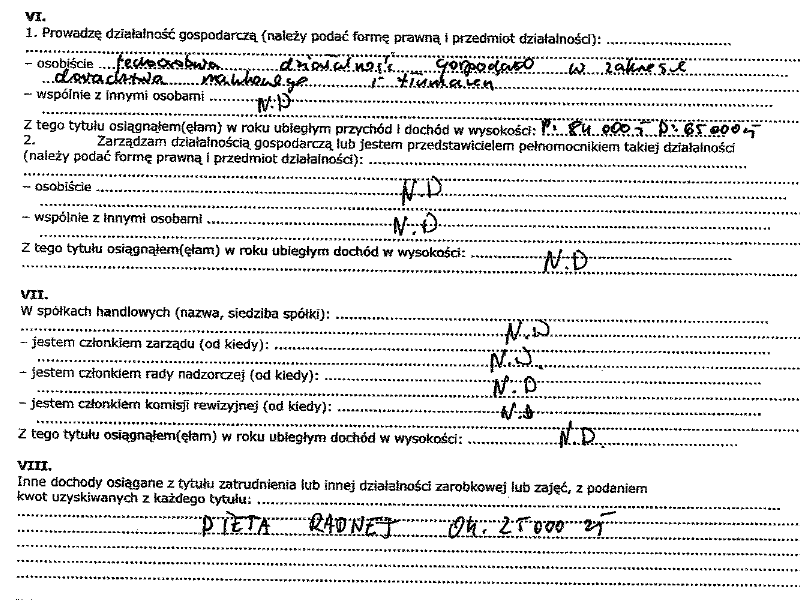 VI.
1. Prowadzę działalność gospodarczą (należy podać formę prawną i przedmiot działalności):
– osobiście jednoosobowa działalność gospodarcza w zakresie
doradztwa i
– wspólnie z innymi osobami
N.D
Z tego tytułu osiągnąłem(ęłam) w roku ubiegłym przychód i dochód w wysokości: P: 84 000 zł D: 65 000 zł
2. Zarządzam działalnością gospodarczą lub jestem przedstawicielem pełnomocnikiem takiej działalności
(należy podać formę prawną i przedmiot działalności):
– osobiście N.D
– wspólnie z innymi osobami N.D
Z tego tytułu osiągnąłem(ęłam) w roku ubiegłym dochód w wysokości: N.D
VII.
W spółkach handlowych (nazwa, siedziba spółki):
N.D
– jestem członkiem zarządu (od kiedy):
N.D.
– jestem członkiem rady nadzorczej (od kiedy):
N.D
– jestem członkiem komisji rewizyjnej (od kiedy):
N.D
Z tego tytułu osiągnąłem(ęłam) w roku ubiegłym dochód w wysokości: N.D
VIII.
Inne dochody osiągane z tytułu zatrudnienia lub innej działalności zarobkowej lub zajęć, z podaniem
kwot uzyskiwanych z każdego tytułu:
DIETA RADNEJ OK. 25 000 zł